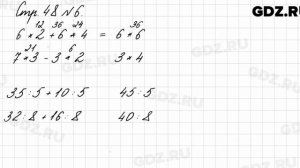 GDZ.RU
Стр. 48 №6.
12 36 24 36
6 · 2 + 6 · 4 = 6 · 6
21 6
7 · 3 - 3 · 2 3 · 4
35 : 5 + 10 : 5 45 : 5
32 : 8 + 16 : 8 40 : 8
GDZ.RU